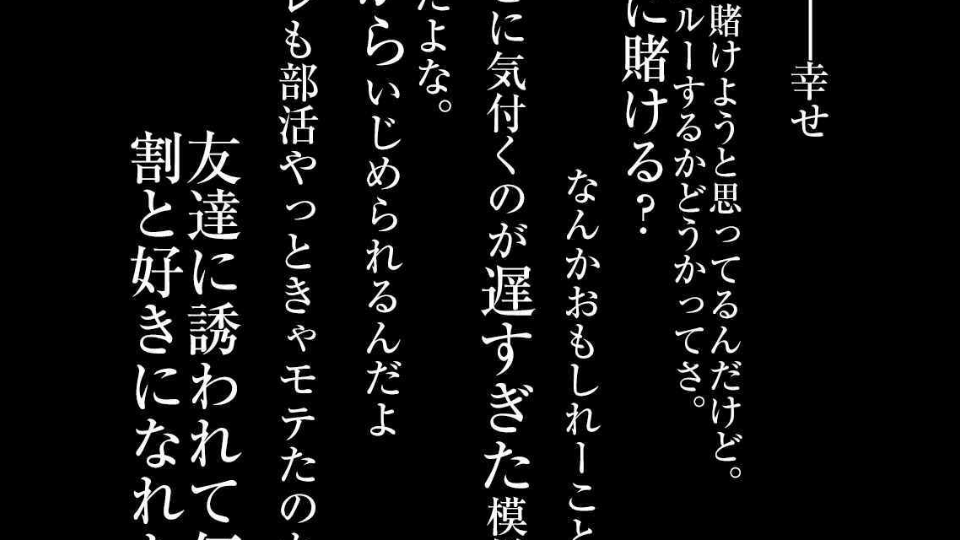 ――幸せ
賭けようと思ってるんだけど。
ルーするかどうかってさ。
に賭ける？
なんかおもしれーこと
とに気付くのが遅すぎた模
だよな。
からいじめられるんだよ
レも部活やっときゃモテたのか
友達に誘われて
割と好きになれ